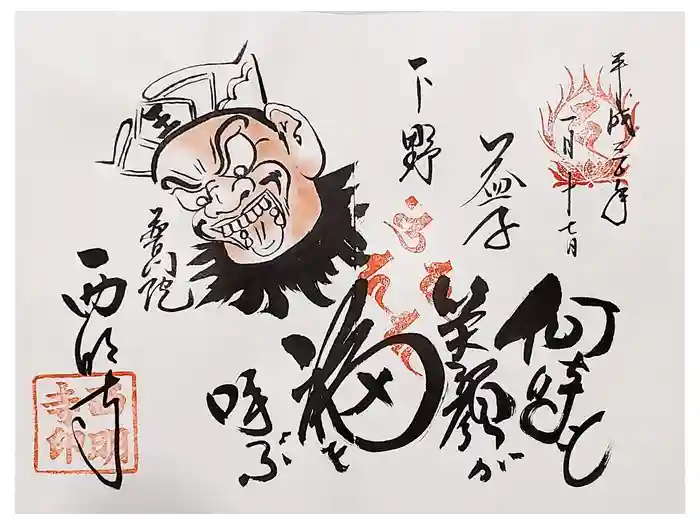 平成三十年
一月十七日
下野
益子
何時も
笑顔が
福を
呼ぶ
王
普門院
西明寺
西明
寺印